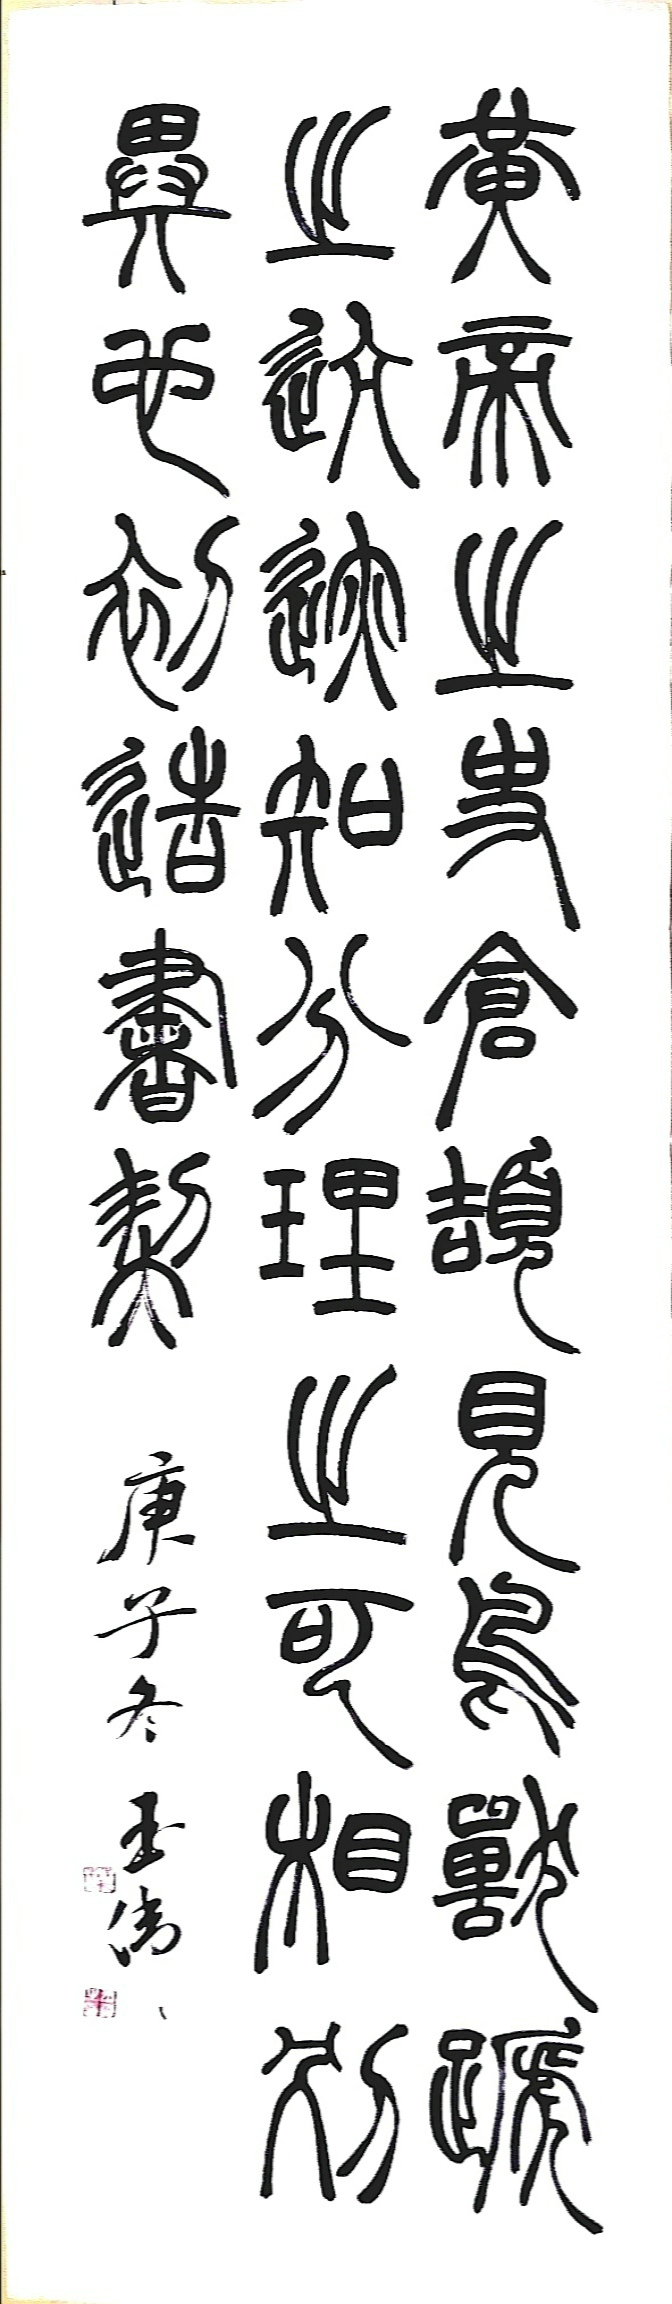 黃帝之史倉頡見鳥獸蹏
之迒迹知分理之可相別
異也初造書契 庚子冬 玉